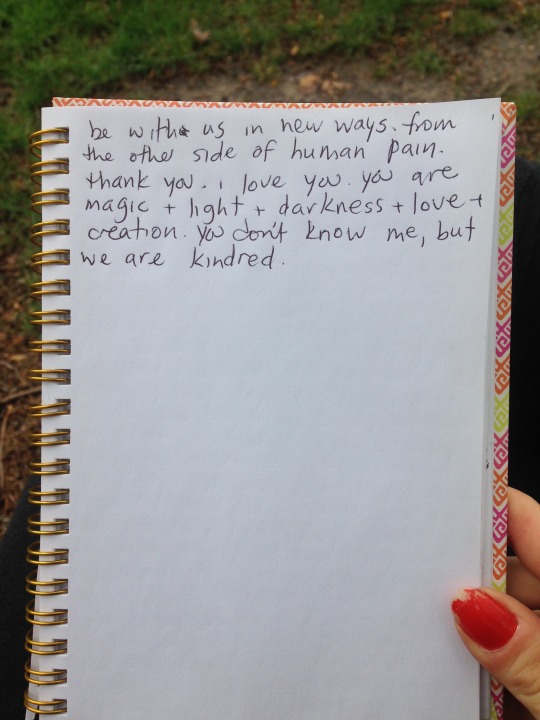 be with us in new ways. from
the other side of human pain.
thank you. i love you. you are
magic + light + darkness + love +
creation. you don't know me, but
we are kindred.